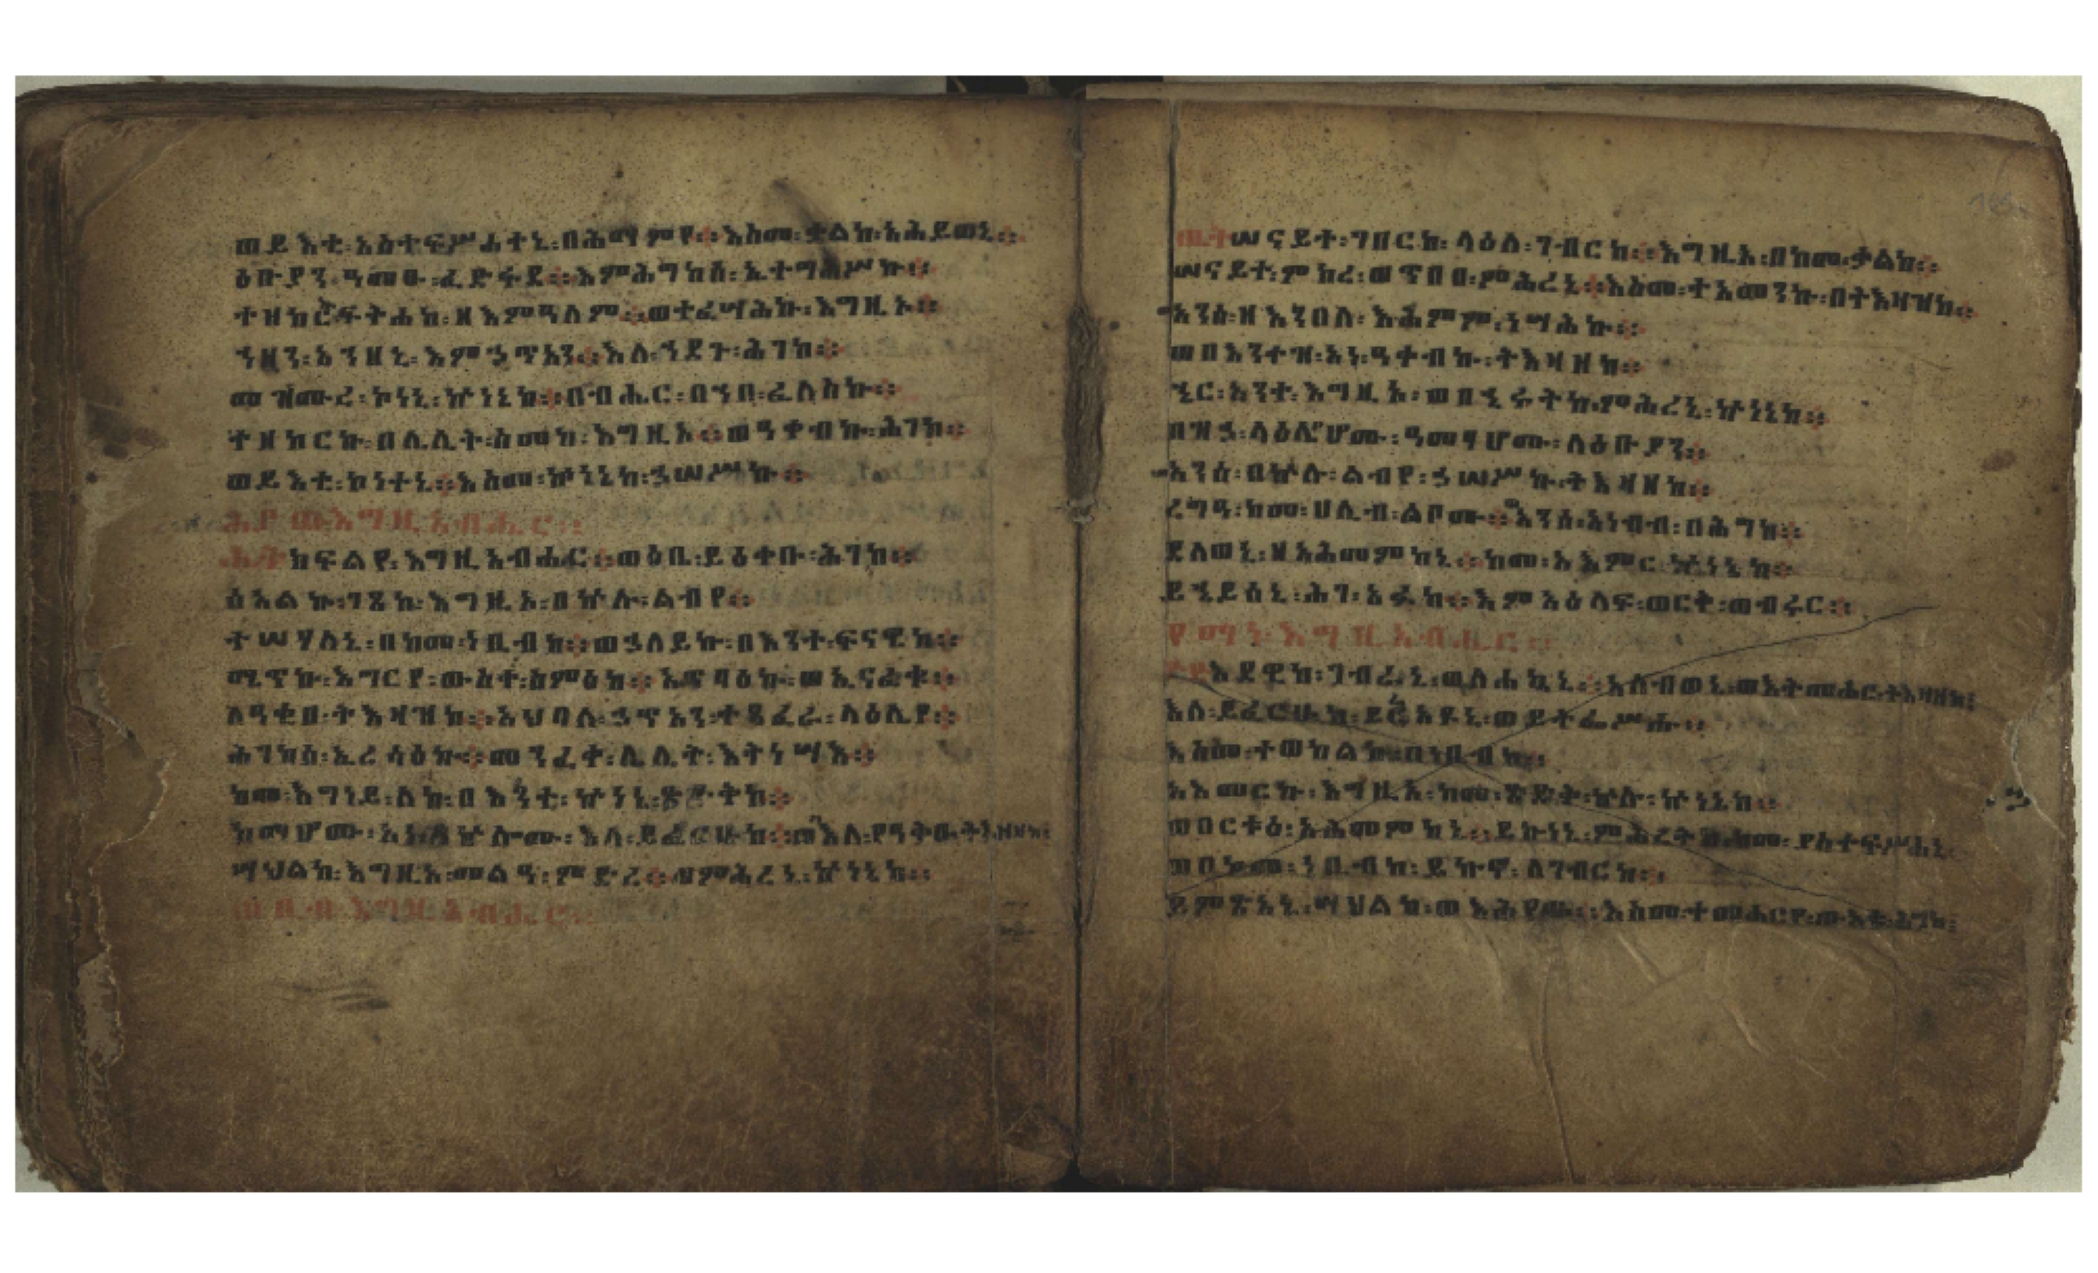 ወይእቲ፡አስተፍሥሐተኒ፡በሕማምየ፡፡እስመ፡ቃልከ፡አሕየወኒ፡፡
ዕቡያን፡ዓመፁ፡ፈድፋደ፡፡እምሕግከሰ፡ኢተግሕሥኩ፡፡
ተዘከርኩ፡ፍትሐከ፡ዘእምዓለም፡፡ወተፈሣሕኩ፡እግዚኦ፡፡
ኀዘን፡አኀዘኒ፡እምኃጥአን፡፡እለ፡ኀደጉ፡ሕገከ፡፡
መዝሙረ፡ኮነኒ፡ኵነኔከ፡፡በብሔር፡በኀበ፡ፈለስኩ፡፡
ተዘከርኩ፡በሌሊት፡ስመከ፡እግዚኦ፡፡ወዓቀብኩ፡ሕገከ፡፡
ወይእቲ፡ኮነተኒ፡፡እስመ፡ኵነኔከ፡ኃሠሥኩ፡፡
እግዚአብሔር፡፡
ሔት ክፍልየ፡እግዚአብሔር፡፡ወዕቤ፡ይዕቀቡ፡ሕገከ፡፡
ሰአልኩ፡ገጸከ፡እግዚኦ፡በኵሉ፡ልብየ፡፡
ተሠሃለኒ፡በከመ፡ነቢብከ፡፡ወኃለይኩ፡በእንተ፡ፍናዊከ፡፡
ሜጥኩ፡እግርየ፡ውስተ፡ስምዕከ፡፡አጥባዕኩ፡ወኢናፈቁ፡፡
ለዓቂበ፡ትእዛዝከ፡፡አህባለ፡ኃጥአን፡ተጸፈራ፡ላዕሌየ፡፡
ሕገከሰ፡ኢረሳዕኩ፡፡መንፈቀ፡ሌሊት፡እትነሣእ፡፡
ከመ፡እግነይ፡ለከ፡በእንተ፡ኵነኔ፡ጽድቅከ፡፡
ከማሆሙ፡አነ፡ለኵሎሙ፡እለ፡ይፈርሁከ፡፡ወለእለ፡የዓቅቡ፡ትእዛዘከ፡
ሣህልከ፡እግዚኦ፡መልዓ፡ምድረ፡፡ወምሕረኒ፡ኵነኔከ፡፡
እግዚአብሔር፡፡
ጤት ሠናይተ፡ገበርከ፡ላዕለ፡ገብርከ፡፡እግዚኦ፡በከመ፡ቃልከ፡፡
ሠናይተ፡ምክረ፡ወጥበበ፡ምሕረኒ፡፡እስመ፡ተአመንኩ፡በትእዛዝከ፡፡
አንሰ፡ዘእንበለ፡እሕምም፡ነሣሕኩ፡፡
ወበእንተዝ፡አነ፡ዓቀብኩ፡ትእዛዘከ፡፡
ኄር፡አንተ፡እግዚኦ፡ወበኂሩትከ፡ምሕረኒ፡ኵነኔከ፡፡
በዝኃ፡ላዕሌሆሙ፡ዓመፃሆሙ፡ለዕቡያን፡፡
አንሰ፡በኵሉ፡ልብየ፡ኃሠሥኩ፡ትእዛዘከ፡፡
ረግዓ፡ከመ፡ሀሊብ፡ልቦሙ፡፡ወአንሰ፡አነብብ፡በሕግከ፡፡
ደለወኒ፡ዘአሕመምከኒ፡፡ከመ፡አእምር፡ኵነኔከ፡፡
ይኄይሰኒ፡ሕገ፡አፉከ፡፡እምአዕላፍ፡ወርቅ፡ወብሩር፡፡
የማነ፡እግዚአብሔር፡፡
እደዊከ፡ገብራኒ፡ወለሐኳኒ፡፡አለብወኒ፡ወእትመሐር፡ትእዛዘከ፡
እለ፡ይፈርሁከ፡ይሬእዩኒ፡ወይትፌሥሑ፡፡
እስመ፡ተወከልኩ፡በነቢብከ፡፡
አእመርኩ፡እግዚኦ፡ከመ፡ጽድቅ፡ኵሉ፡ኵነኔከ፡፡
ወበርቱዕ፡አሕመምከኒ፡፡ይኩነኒ፡ምሕረትከ፡ከመ፡ያስተፍሥሐኒ፡
ወበከመ፡ነቢብከ፡ይኩኖ፡ለገብርከ፡፡
ይምጽአኒ፡ሣህልከ፡ወአሕየው፡፡እስመ፡ተመሐርየ፡ውእቱ፡ሕግከ፡